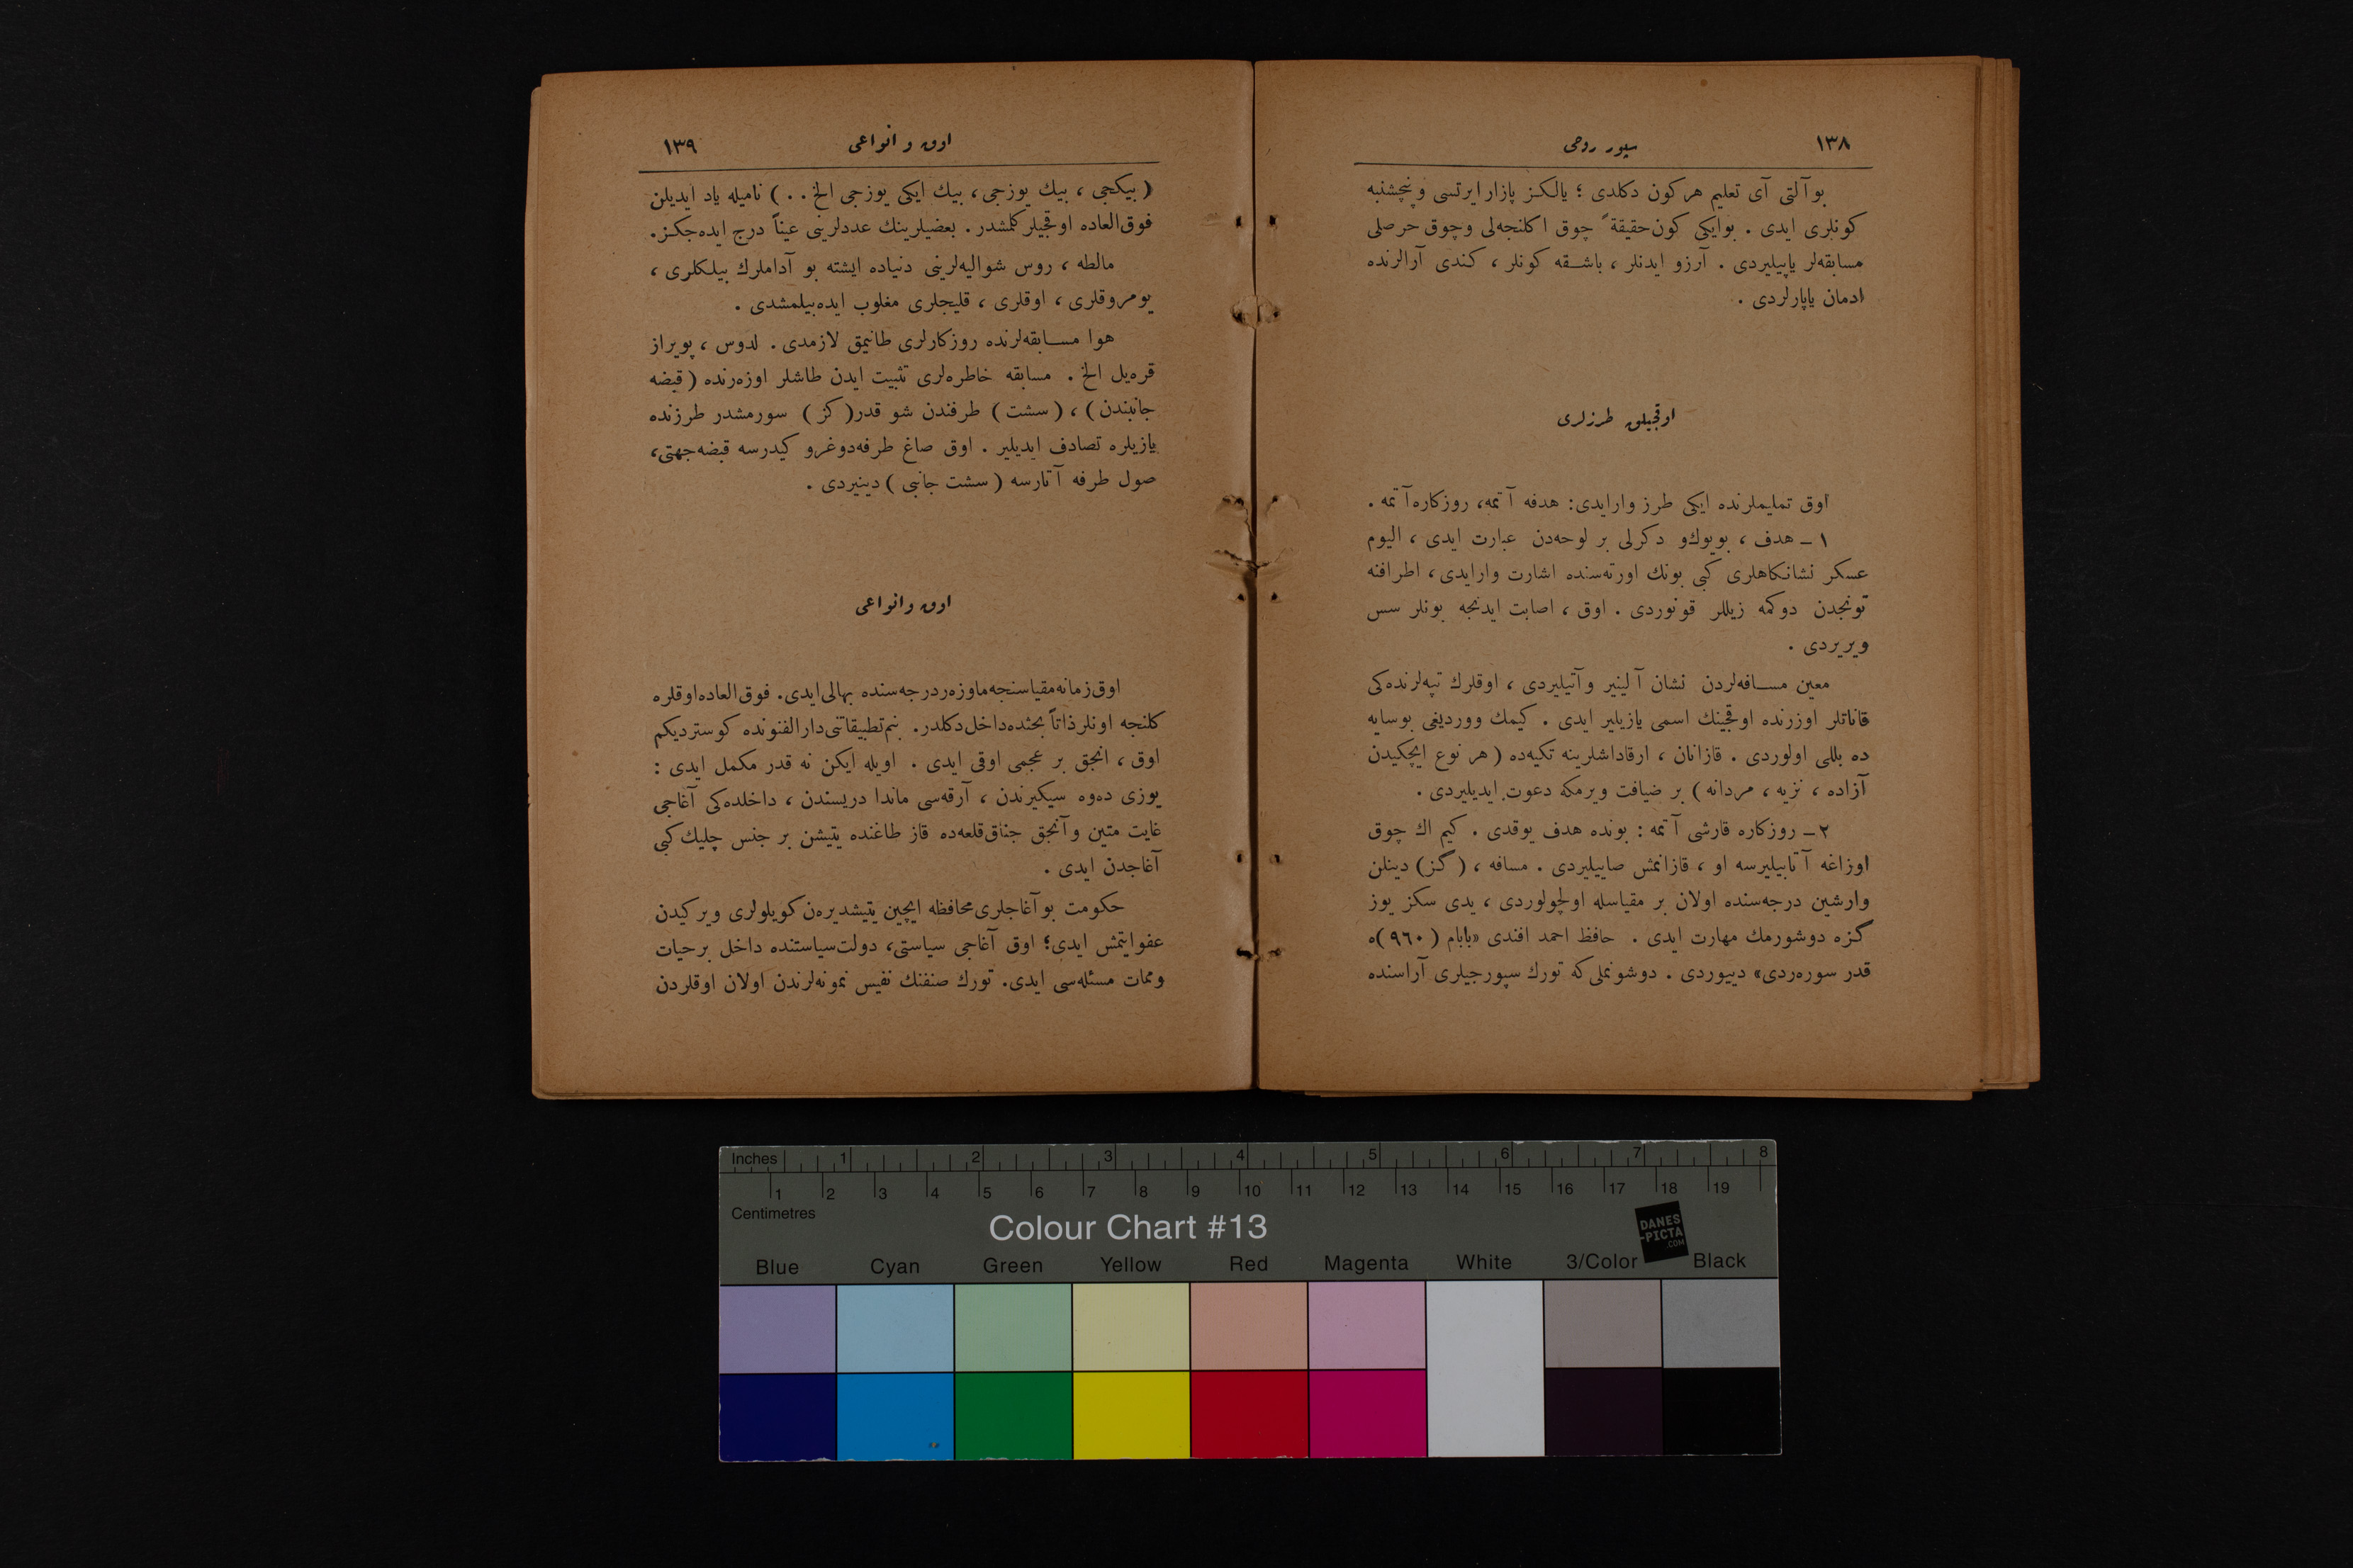 ١٣٨
سپور روحی
بوآلتی آی تعلیم هركون دكلدی ؛ یالكز پازار ایرتسی وپنچشنبه
كونلری ایدی . بوایكی كون حقیقةً چوق اكلنجه‌لی وچوق حرصلی
مسابقه‌لر یاپیلیردی . آرزو ایدنلر ، باشقه كونلر ، كندی آرالرنده
ادمان یاپارلردی .
اوقجیلق طرزلری
اوق تعلیملرنده ایكی طرز وارایدی: هدفه آتمه، روزكاره آتمه .
١ـ هدف ، بویوك‌و دكرلی بر لوحه‌دن عبارت ایدی ، الیوم
عسكر نشانكاهلری كبی بونك اورته‌سنده اشارت وارایدی ، اطرافنه
تونجدن دوكمه زیللر قونوردی . اوق ، اصابت ایدنجه بونلر سس
ویریردی .
معین مسافه‌لردن نشان آلینیر وآتیلیردی ، اوقلرك تپه‌لرنده‌كی
قاناتلر اوزرنده اوقجینك اسمی یازیلیر ایدی . كیمك ووردیغی بوسایه
ده بللی اولوردی . قازانان ، ارقاداشلرینه تكیه‌ده ( هر نوع ایچكیدن
آزاده ، نزیه ، مردانه ) بر ضیافت ویرمكه دعوت ایدیلیردی .
٢ـ روزكاره قارشی آتمه : بونده هدف یوقدی . كیم اك چوق
اوزاغه آتابیلیرسه او ، قازانمش صاییلیردی . مسافه ، (كز) دینلن
وارشین درجه‌سنده اولان بر مقیاسله اولچولوردی ، یدی سكز یوز
كزه دوشورمك مهارت ایدی . حافظ احمد افندی «بابام (٩٦٠)ه
قدر سوره‌ردی» دییوردی . دوشونملی كه تورك سپورجیلری آراسنده
اوق و انواعی
١٣٩
( بیكجی ، بیك یوزجی ، بیك ایكی یوزجی الخ . . ) نامیله یاد ایدیلن
فوق‌العاده اوقجیلر كلمشدر . بعضیلرینك عددلرینی عیناً درج ایده‌جكز.
مالطه ، روس شوالیه‌لرینی دنیاده ایشته بو آداملرك بیلكلری ،
یومروقلری ، اوقلری ، قلیجلری مغلوب ایده‌بیلمشدی .
هوا مسابقه‌لرنده روزكارلری طانیمق لازمدی . لدوس ، پویراز
قره‌یل الخ . مسابقه خاطره‌لری تثبیت ایدن طاشلر اوزه‌رنده ( قبضه
جانبندن ) ، ( سشت ) طرفندن شو قدر ( كز ) سورمشدر طرزنده
یازیلره تصادف ایدیلیر . اوق صاغ طرفه‌دوغرو كیدرسه قبضه‌جهتی،
صول طرفه آتارسه ( سشت جانبی ) دینیردی .
اوق وانواعی
اوق زمانه مقیاسنجه ماوزه‌ردرجه‌سنده بهالی‌ایدی. فوق‌العاده‌اوقلره
كلنجه اونلر ذاتاً بحثده‌داخل‌دكلدر. بنم‌تطبیقاتنی دارالفنونده كوستردیكم
اوق ، انجق بر عجمی اوقی ایدی . اویله ایكن نه قدر مكمل ایدی :
یوزی ده‌وه سیكیرندن ، آرقه‌سی ماندا دریسندن ، داخلده‌كی آغاجی
غایت متین وآنجق جناق‌قلعه‌ده قاز طاغنده یتیشن بر جنس چلیك كبی
آغاجدن ایدی .
حكومت بوآغاجلری محافظه ایچین یتیشدیره‌ن كویلولری ویركیدن
عفوایتمش ایدی؛ اوق آغاجی سیاستی، دولت‌سیاستنده داخل برحیات
وممات مسئله‌سی ایدی. تورك صنفنك نفیس نمونه‌لرندن اولان اوقلردن
Inches 1 2 3 4 5 6 7 8
1 2 3 4 5 6 7 8 9 10 11 12 13 14 15 16 17 18 19
Centimetres
Colour Chart #13
DANES
-PICTA
.COM
Blue Cyan Green Yellow Red Magenta White 3/Color Black